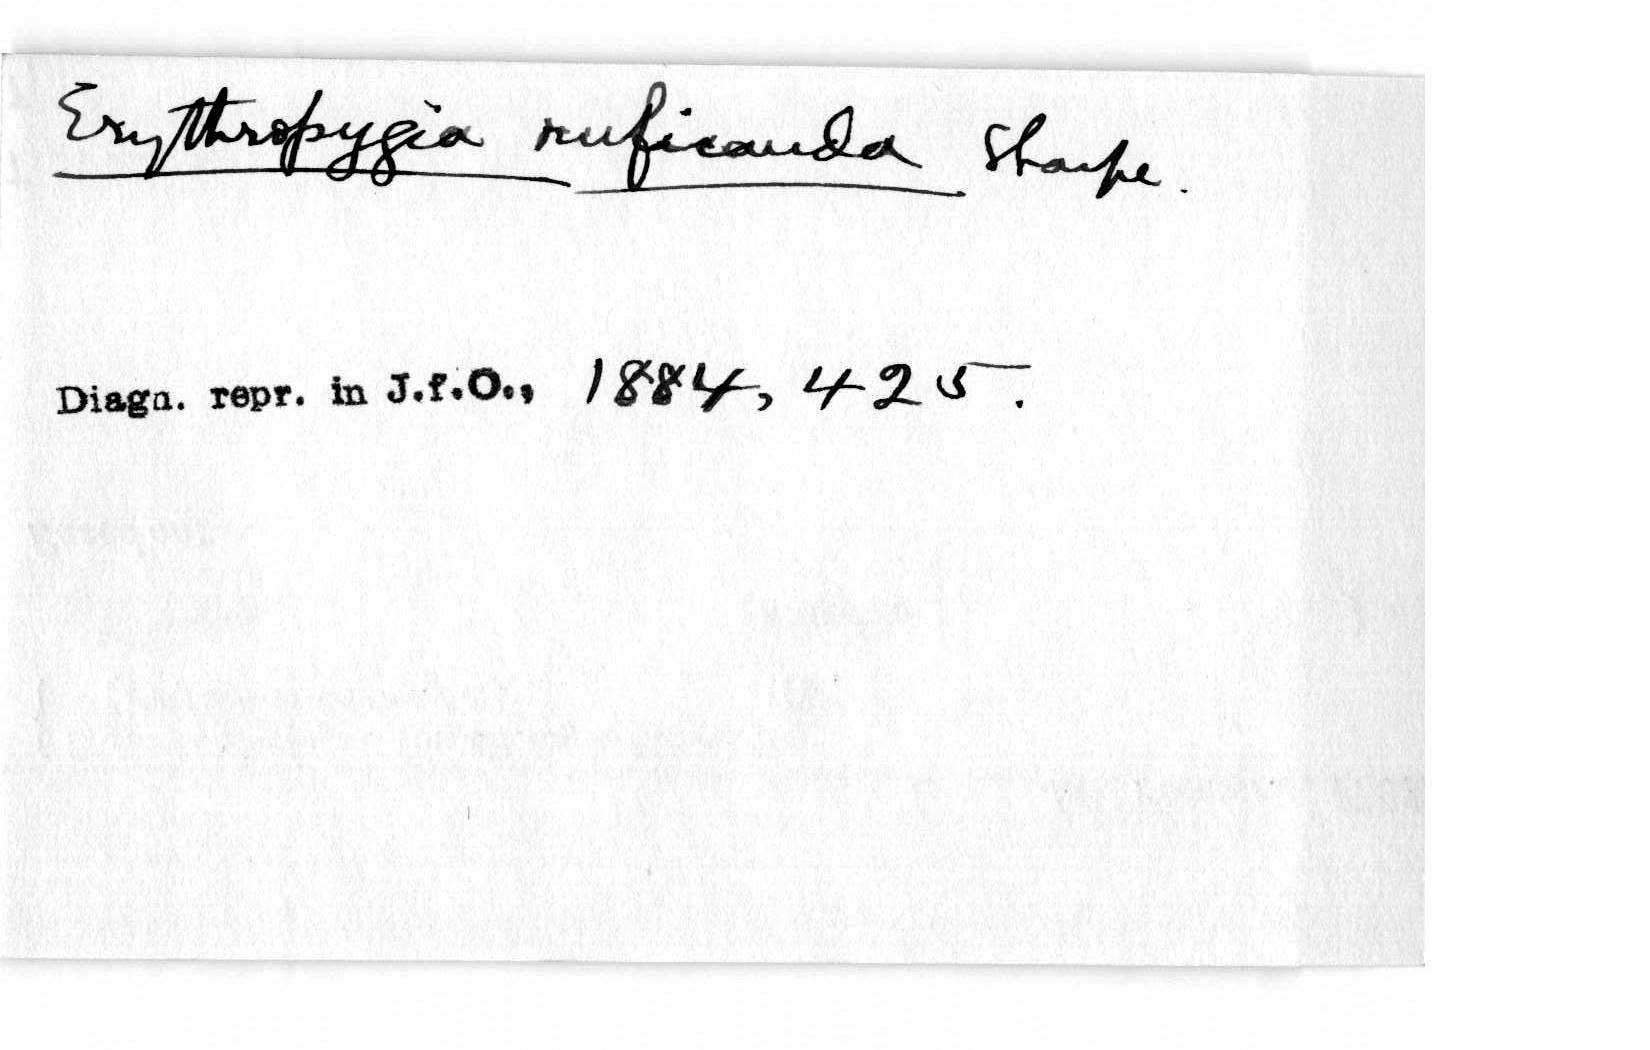 Erythropygia ruficauda Sharpe.
Diagn. repr. in J.f.O., 1884, 425.